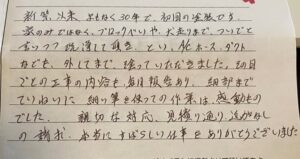 新築以来 まもなく30年で、初回の塗装です。
家のみではなく、ブロックべいや、犬走りまで、ついでと
言って 洗浄して頂き、とい、化ホース、ダクト
なども、外してまで、塗っていただきました。その日
ごとの工事の内容も、毎日報告あり、細部まで
ていねいに 細い筆を使っての作業は、感動もの
でした。 親切な対応、見積り通り、追がなし
の請求、本当にすばらしい仕事を ありがとうございました